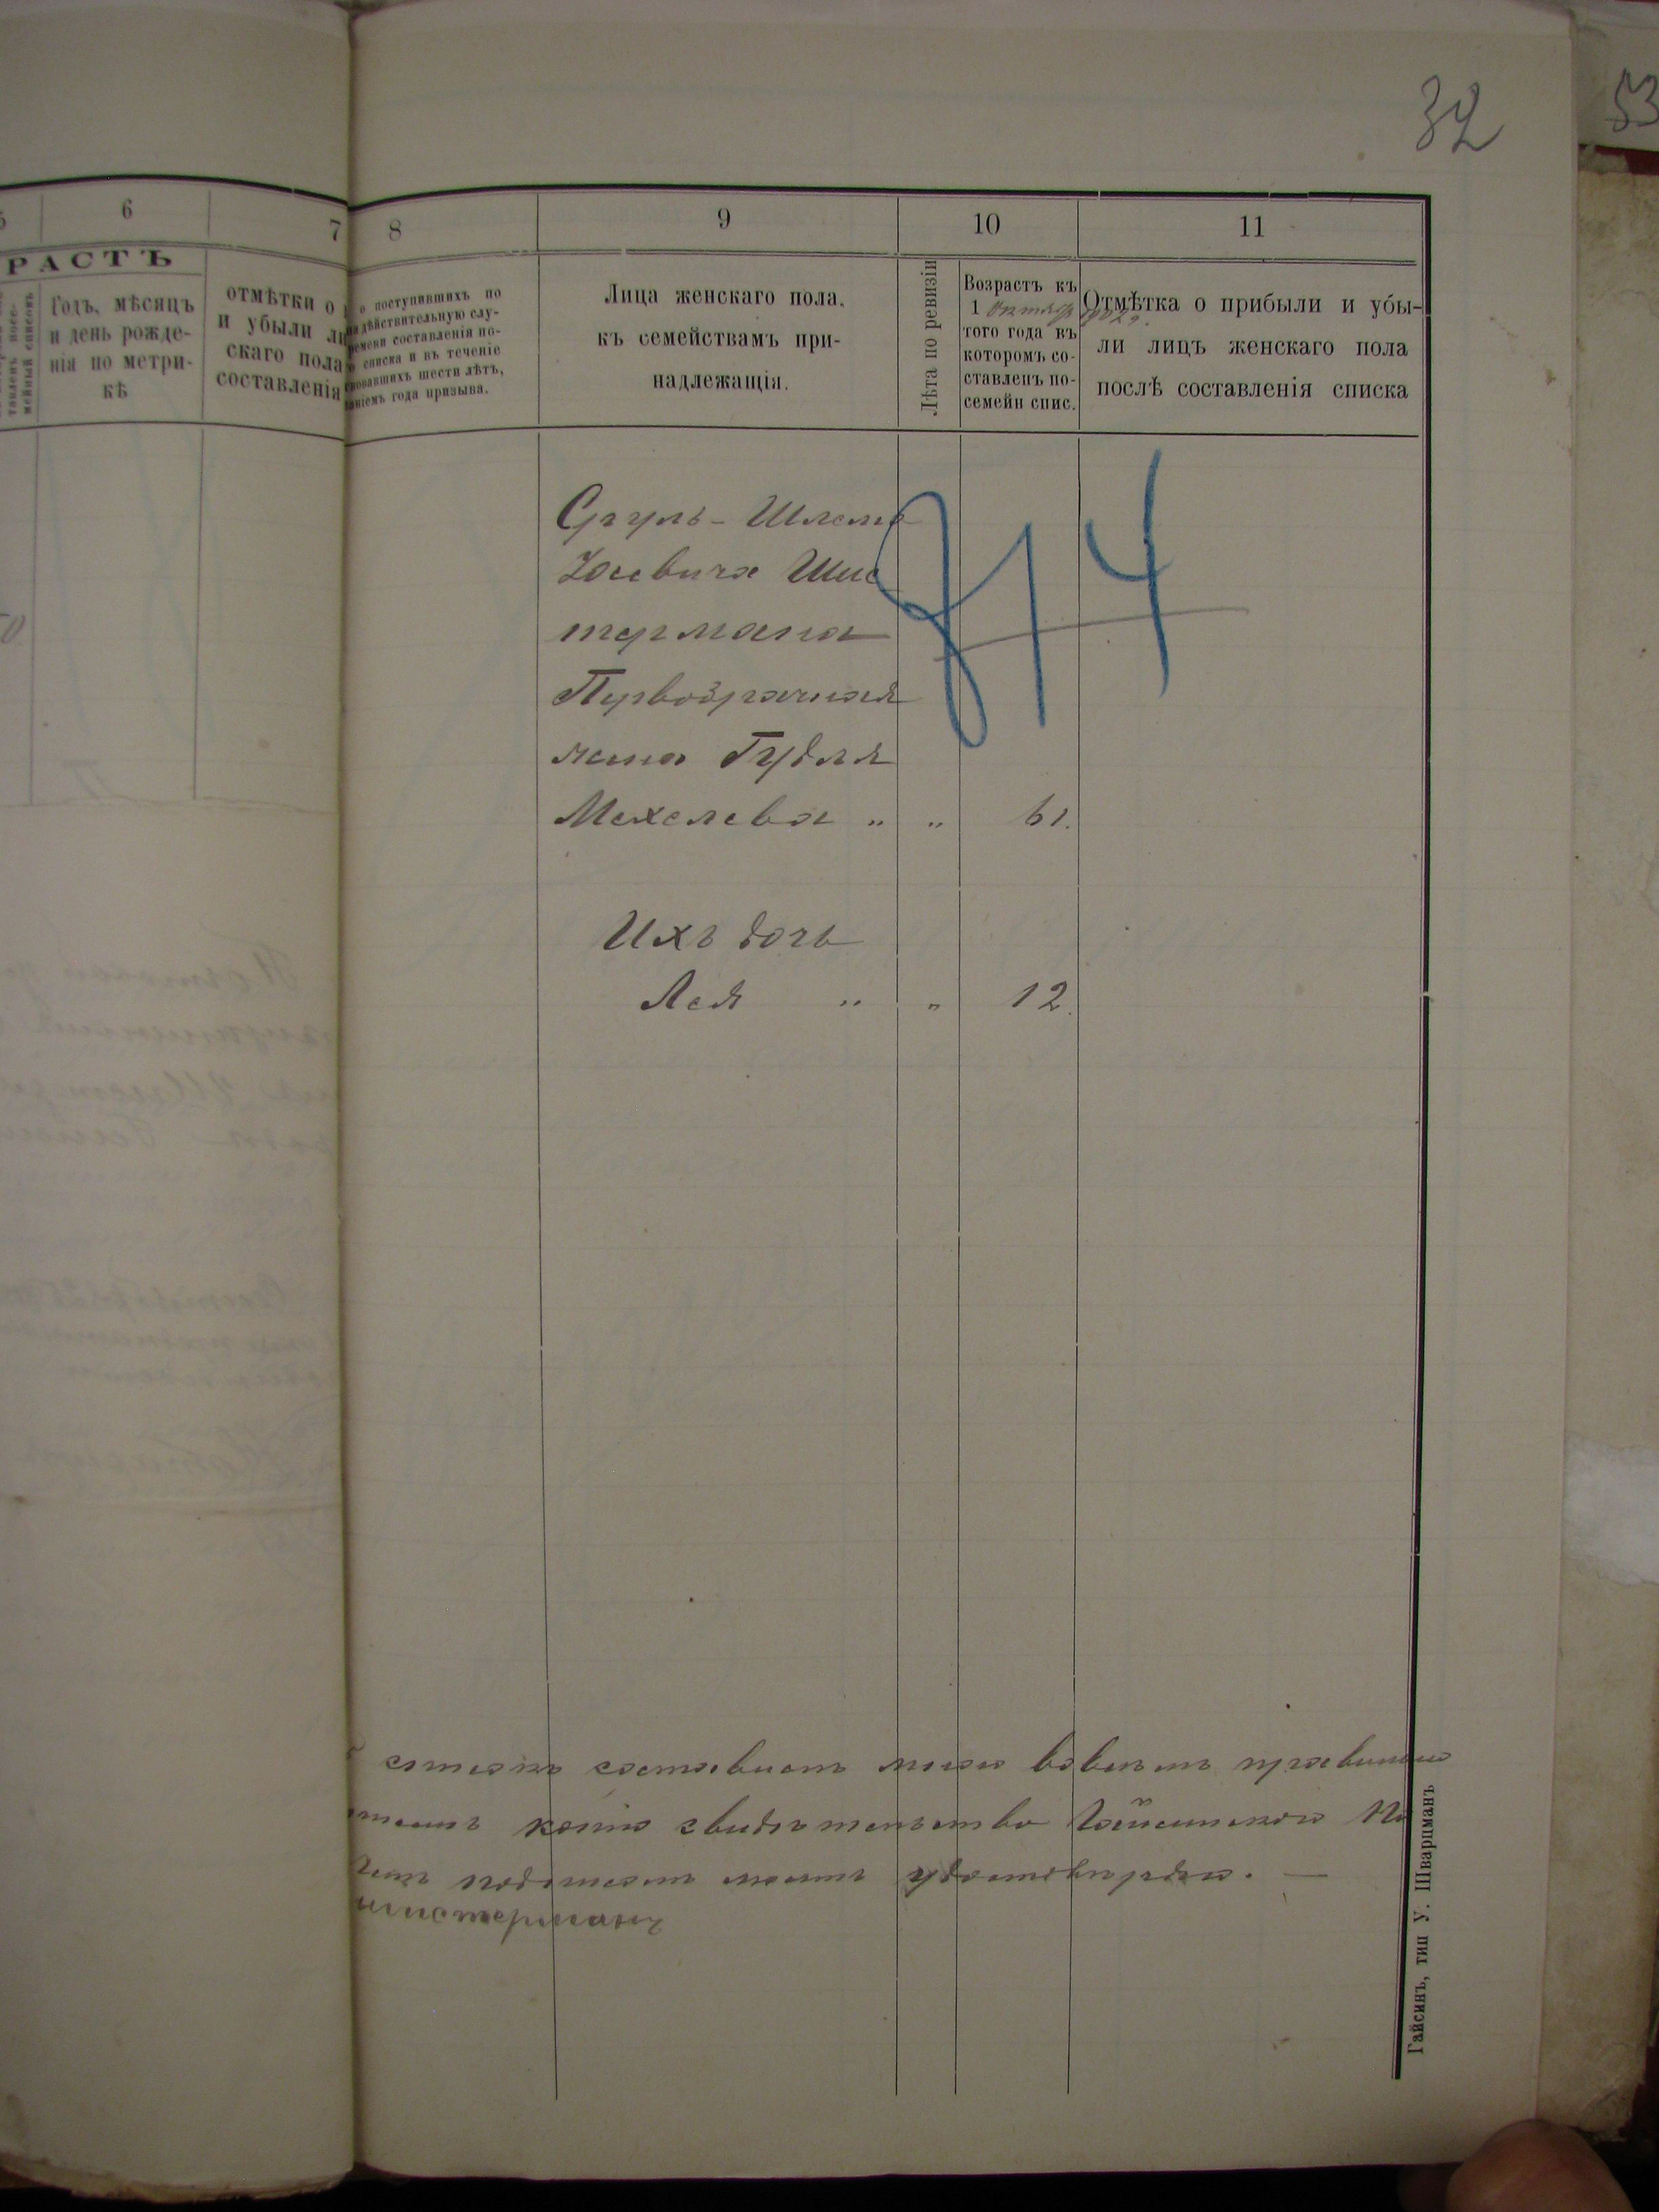 32
53
6
7
8
9
10
11
РАСТЪ
Годъ, мѣсяцъ
и день рожде-
нія по метри-
кѣ
отмѣтки о
и убыли
скаго пола
составленія
о поступившихъ по
дѣйствительную слу-
составленія по-
списка и въ теченіе
шести лѣтъ,
года призыва.
Лица женскаго пола,
къ семействамъ при-
надлежащія.
Лѣта по ревизіи
Возрастъ къ
1 Октября
того года въ
которомъ со-
ставленъ по-
семейн спис.
Отмѣтка о прибыли и убы-
ли лицъ женскаго пола
послѣ составленія списка
Сруль-Шлема
Іосевича Шис
термана
Первобрачная
жена Гудля
Мехелева „ „ 61.
814
Ихъ дочь
Лея „ „ 12.
составленъ
копію свидѣтельство Гайсинского
удостовѣряю. —
Шистерманъ
Гайсинъ, тип У. Шварцманъ